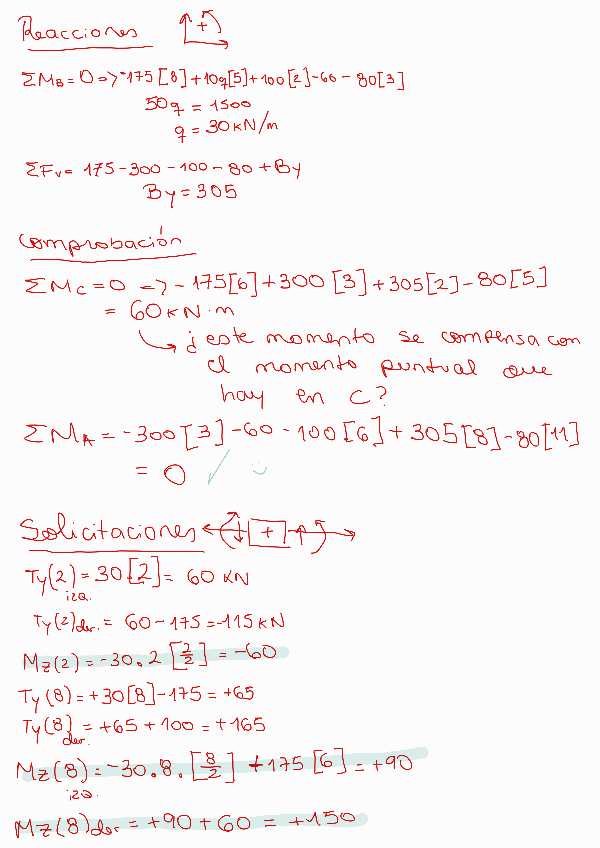 Reacciones +
ΣM_B = 0 => -175[8] + 10q[5] + 100[2] - 60 - 80[3]
50q = 1500
q = 30 kN/m
ΣFv = 175 - 300 - 100 - 80 + By
By = 305
comprobación
ΣM_C = 0 => - 175[6] + 300 [3] + 305[2] - 80[5]
= 60 kN·m
¿este momento se compensa con
el momento puntual que
hay en C?
ΣM_A = -300[3] - 60 - 100[6] + 305[8] - 80[11]
= 0 ✓ :)
Solicitaciones +
Ty(2) izq. = 30[2] = 60 KN
Ty(2) der. = 60 - 175 = -115 KN
Mz(2) = -30·2 [2/2] = -60
Ty(8) = +30[8] - 175 = +65
Ty(8) der. = +65 + 100 = +165
Mz(8) izq. = -30·8·[8/2] + 175[6] = +90
Mz(8) der = +90 + 60 = +150